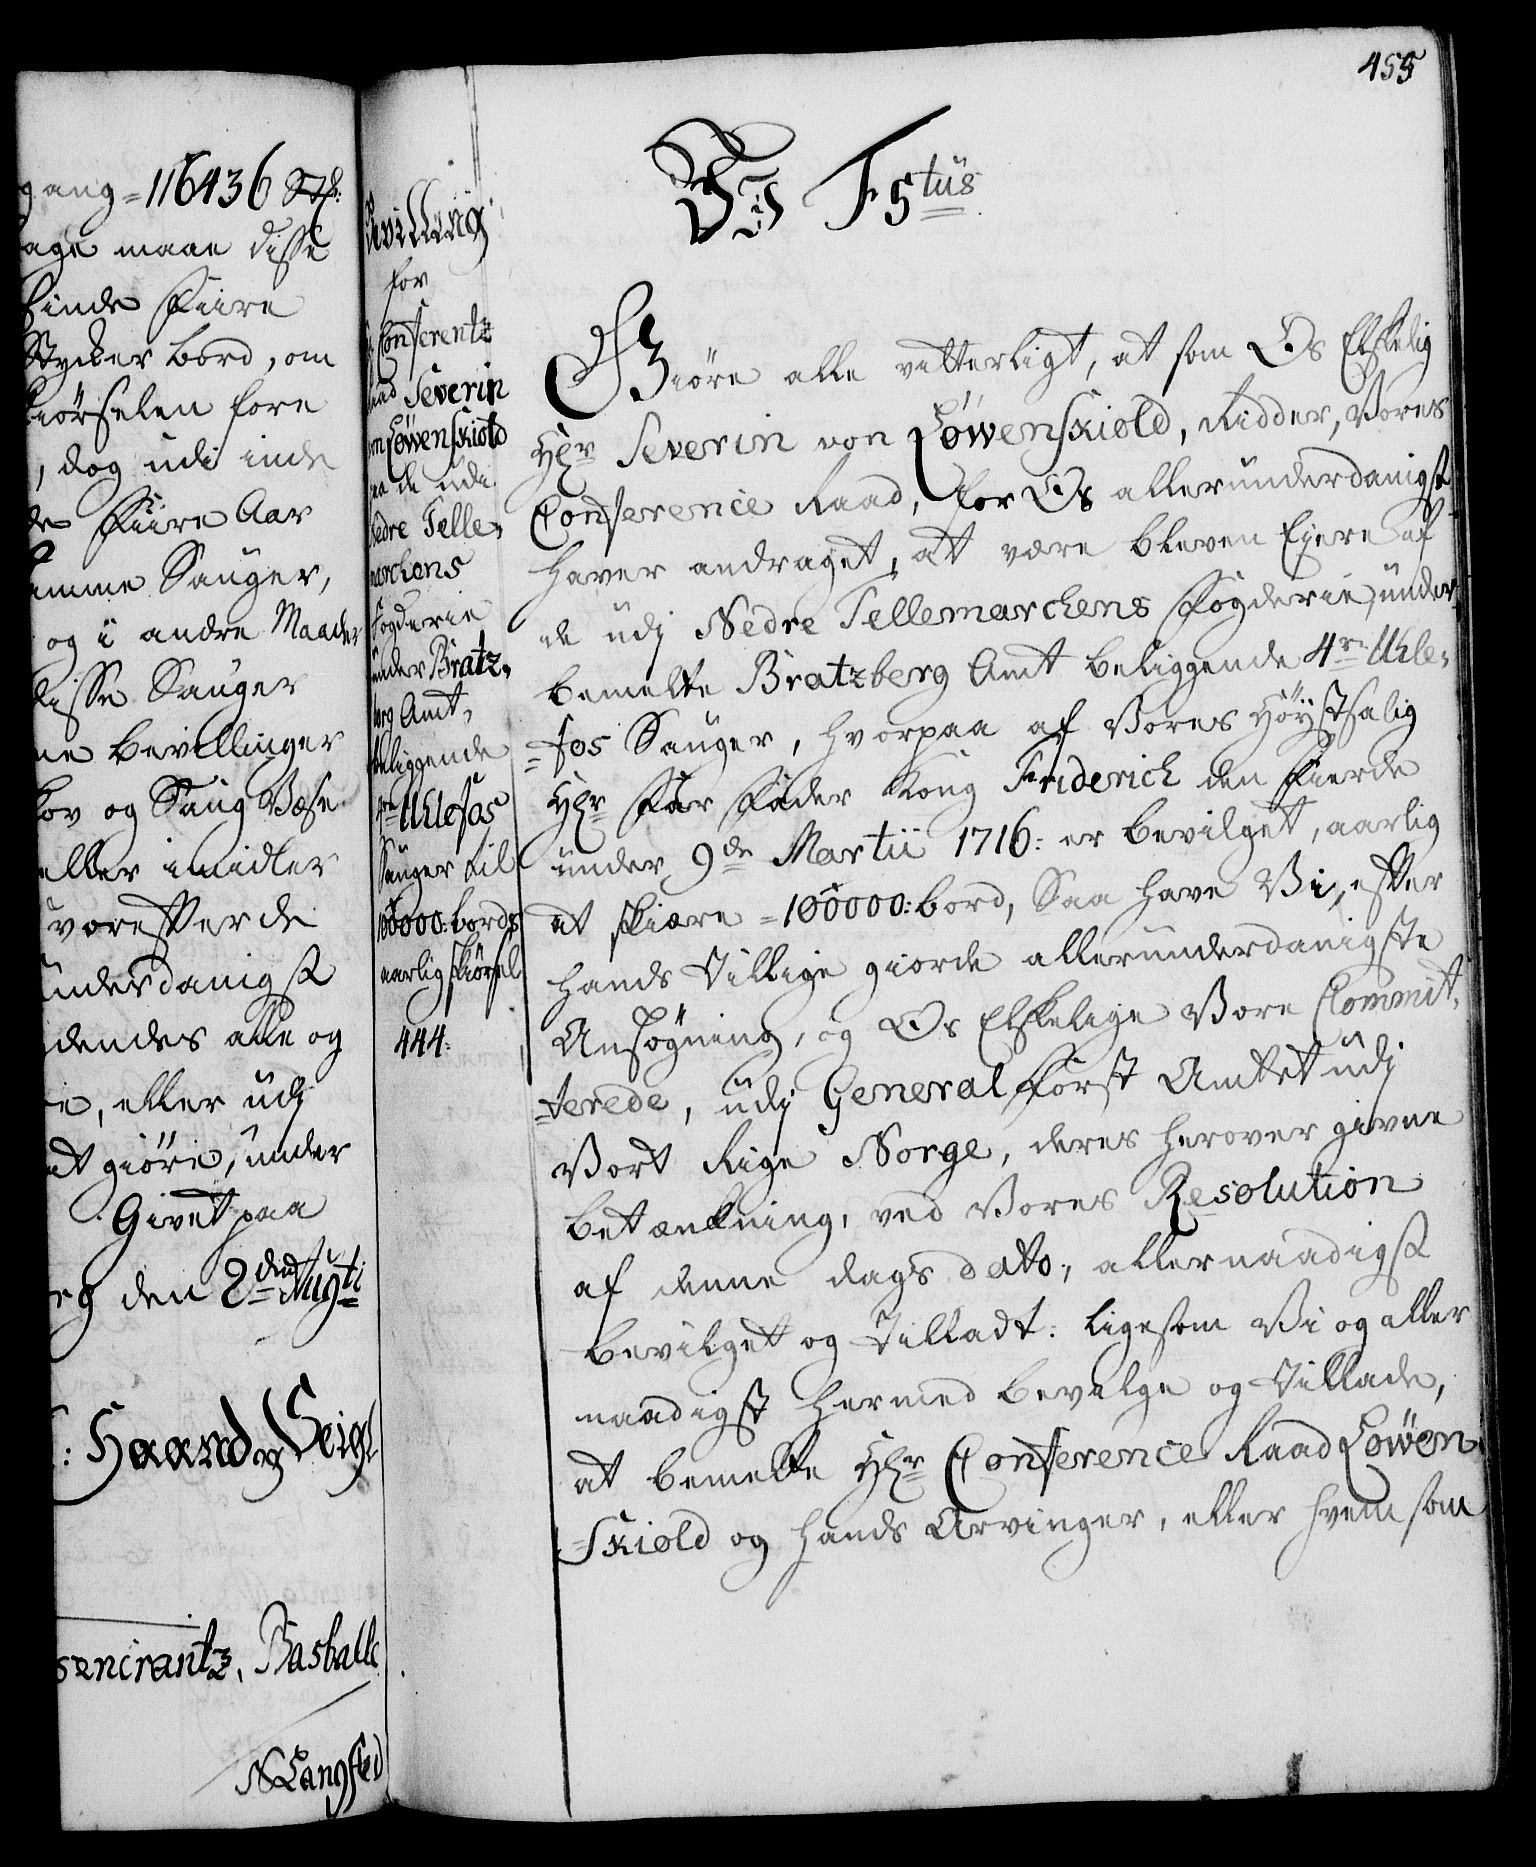 455
gang = 116436 Stk:
age maae disse
binde Fiire
Stycker bord, om
kiørselen fore
, dog udi inde
de Fiire Aar
amme Sauger,
og i andre Maader
disse Sauger
ne bevillinger
kov og Saug Væse
eller imidler
vorefter de
underdanigst
dendes alle og
e, eller udj
at giøre, under
. Givet paa
rg den 2den Augti
: Haand og Seigl
sencrantz, Basballe
N Langsted
bevilling
for
Conferentz
raad Severin
von Løwenskiold
paa de udi
Nedre Telle,
marchens
Fogderie
under Bratz,
berg Amt,
beliggende
4re Uhlefos
Sauger til
100000: bords
aarlig skiørsel
444:
Vi F5tus
Giöre alle vitterligt, at som Os Elskelig
Hr Severin von Løwenskiold, Ridder, Vores
Conference Raad, for Os allerunderdanigst
haver andraget, at være bleven Ejere af
de udj Nedre Tellemarchens Fogderie, under
bemelte Bratzberg Amt beliggende 4re Uhle,
=fos Sauger, hvorpaa af Vores Høystsalig
Hr Far Fader Kong Friderich den Fierde
under 9de Martii 1716: er bevilget, aarlig
at skiære = 100000: bord, Saa have Vi, efter
hands Tillige giorde allerunderdanigste
Ansøgning, og Os Elskelige Vore Commit,
=terede, udj General Forst Amtet udj
Vort Rige Norge, deres herover givne
betænkning, ved Vores Resolution
af denne dags dato, allernaadigst
bevilget og Tilladt: ligesom Vi og aller
naadigst hermed bevilge og Tillade,
at bemelte Hr Conference Raad Løwen,
=skiold og hands Arvinger, eller hvem som